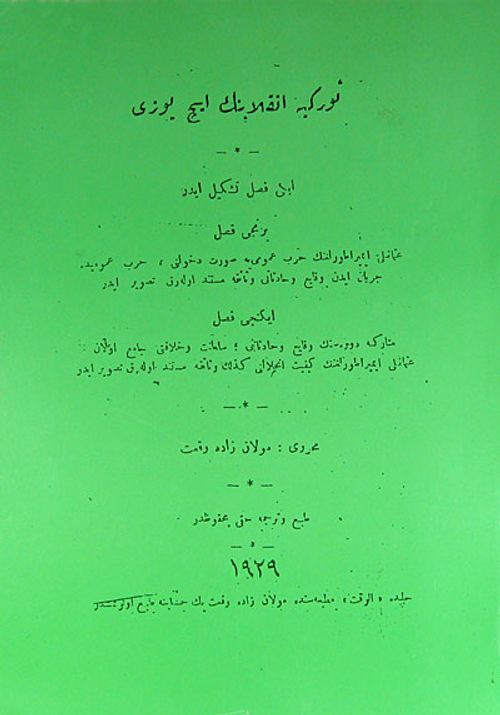 تورکیه انقلابنك ایچ یوزی
— * —
ایكی فصل تشكیل ایدر
برنجی فصل
عثمانلی ایمپراطورلغنك حرب عمومی‌یه صورت دخولی ، حرب عمومیده
جریان ایدن وقایع وحادثاتی وثائقه مستند اوله‌رق تصویر ایدر
ایكنجی فصل
متاركه دوره‌سنك وقایع وحادثاتنی ؛ سلطنت وخلافتی جامع اولان
عثمانلی ایمپراطورلغنك كیفیت انحلالنی كذلك وثائقه مستند اوله‌رق تصویر ایدر
— * —
محرری : مولان زاده رفعت
— * —
طبع وترجمه حقی محفوظدر
— * —
١٩٢٩
حلبده « الوقت » مطبعه‌سنده مولان زاده رفعت بك حسابنه طبع اولونمشدر